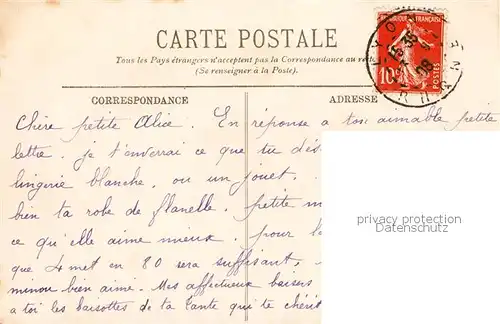 CARTE POSTALE
Tous les Pays étrangers n'acceptent pas la Correspondance au
(Se renseigner à la Poste).
RÉPUBLIQUE FRANÇAISE
10
LYON
RHONE
15 35
08
CORRESPONDANCE
ADRESSE
Chère petite Alice. En réponse a ton aimable petite
lettre. je t'enverrai ce que tu dés
lingerie blanche, ou un jouet.
bien ta robe de flanelle. petite m
ce qu'elle aime mieux. pour l
que 4 met en 80 sera suffisant,
minou bien aimé. Mes affectueux baisers
a toi les baisottes de ta tante qui te chérit
privacy protection
Datenschutz